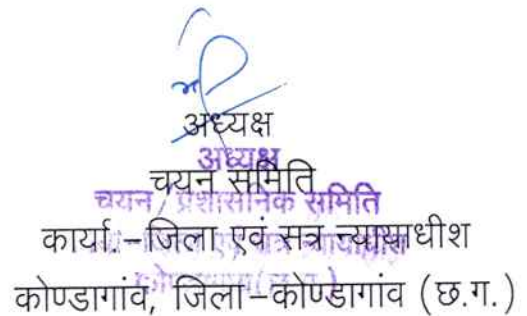 अध्यक्ष
अध्यक्ष
चयन समिति
चयन / प्रशासनिक समिति
कार्या.-जिला एवं सत्र न्यायाधीश
कोण्डागांव, जिला-कोण्डागांव (छ.ग.)